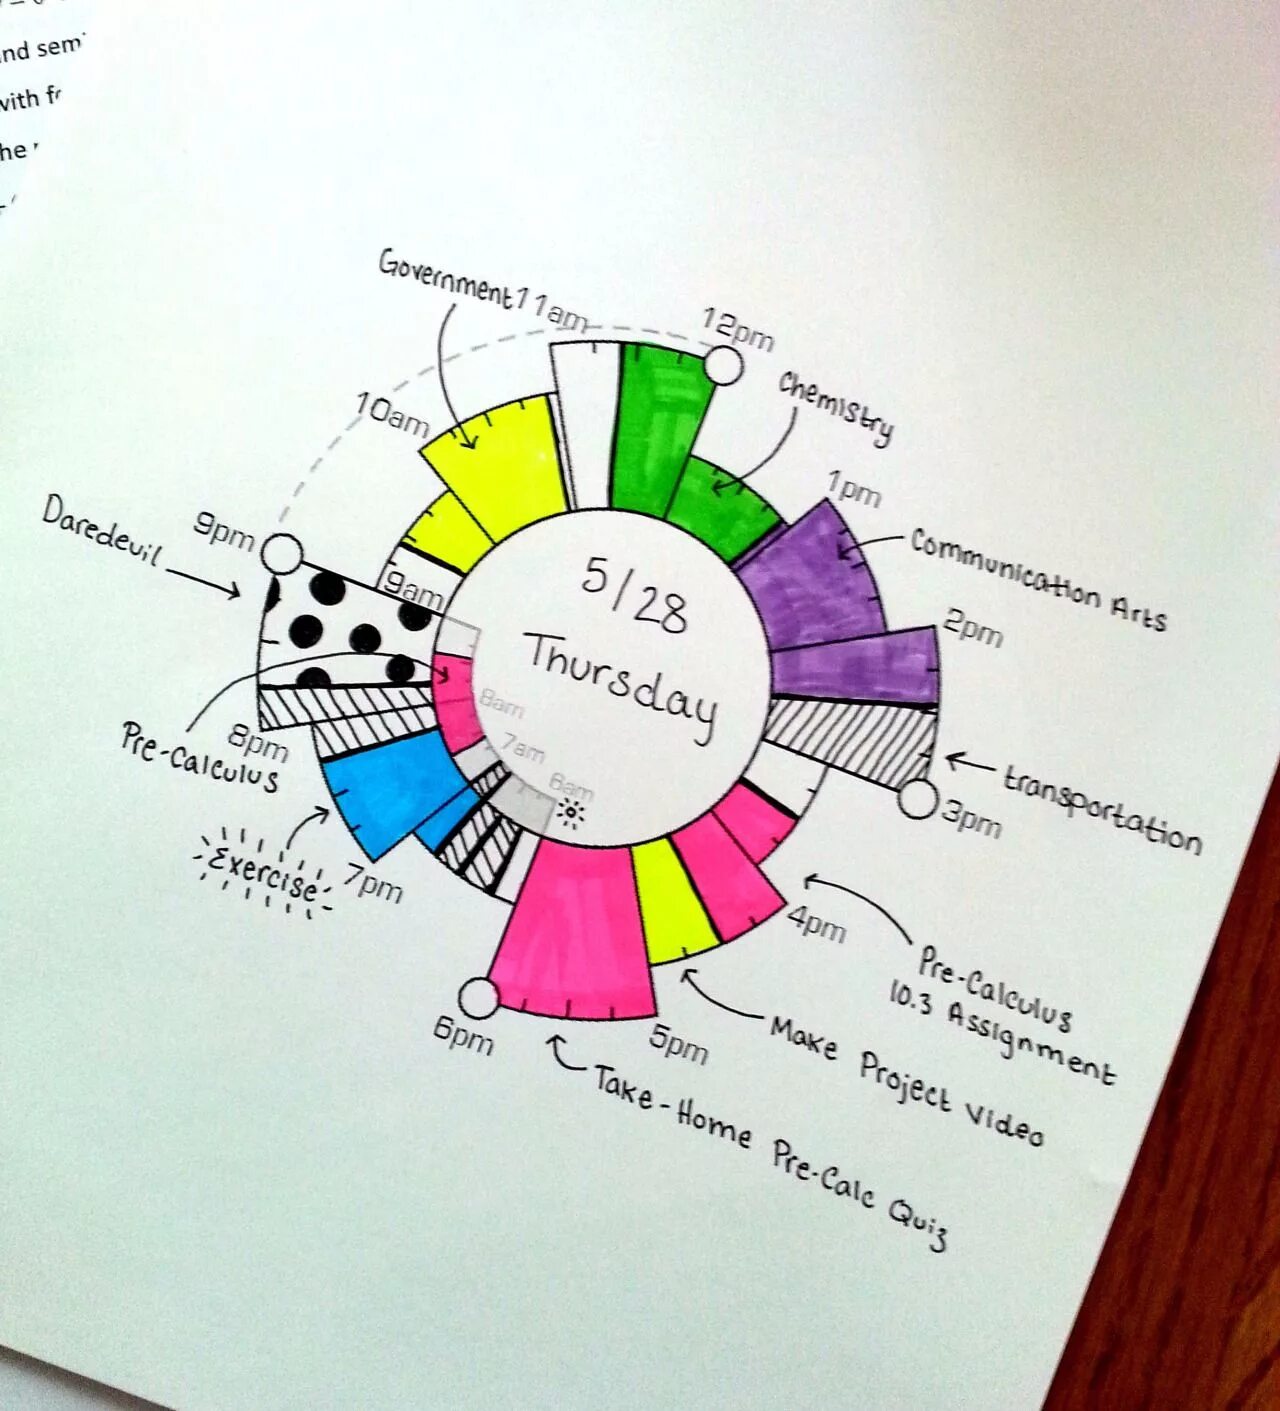 nd sem
with fr
he
Government
11am
12pm
Chemistry
10am
1pm
Communication Arts
9pm
Daredevil
9am
5/28
Thursday
2pm
transportation
3pm
8am
7am
6am
8pm
Pre-Calculus
Exercise
7pm
4pm
Pre-Calculus
10.3 Assignment
Make Project Video
6pm
5pm
Take-Home Pre-Calc Quiz